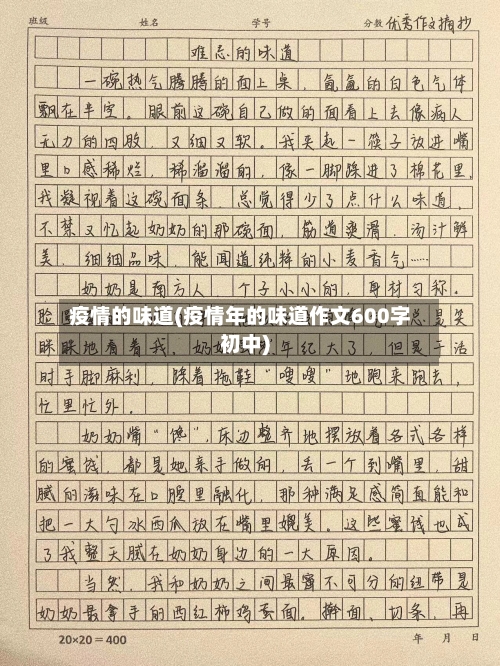 班级 姓名 学号 分数 优秀作文摘抄
难忘的味道
一碗热气腾腾的面上桌，氤氲的白色气体
飘在半空。眼前这碗自己做的面看上去像病人
无力的四肢，又细又软。我夹起一筷子放进嘴
里口感稀烂，稀溜溜的，像一脚踩进了棉花里，
我凝视着这碗面条，总觉得少了点什么味道，
不禁又忆起奶奶的那碗面，筋道爽滑，汤汁鲜
美，细细品味，能闻道纯粹的小麦香气……
奶奶是南方人，个子小小的，身材匀称。
脸圆
疫情的味道(疫情年的味道作文600字
初中)
总是笑
眯眯地看着我。奶奶 年纪大了，但是干活
时手脚麻利，踩着拖鞋“嗖嗖”地跑来跑去，
忙里忙外。
奶奶嘴“馋”，床边整齐地摆放着各式各样
的蜜饯，都是她亲手做的，丢一个到嘴里，甜
腻的滋味在口腔里融化，那种满足感简直能和
把一大勺冰西瓜放在嘴里媲美。这些蜜饯也成
了我整天腻在奶奶身边的一大原因。
当然，我和奶奶之间最密不可分的纽带是
奶奶最拿手的西红柿鸡蛋面。擀面、切条，再
20×20=400 年 月 日